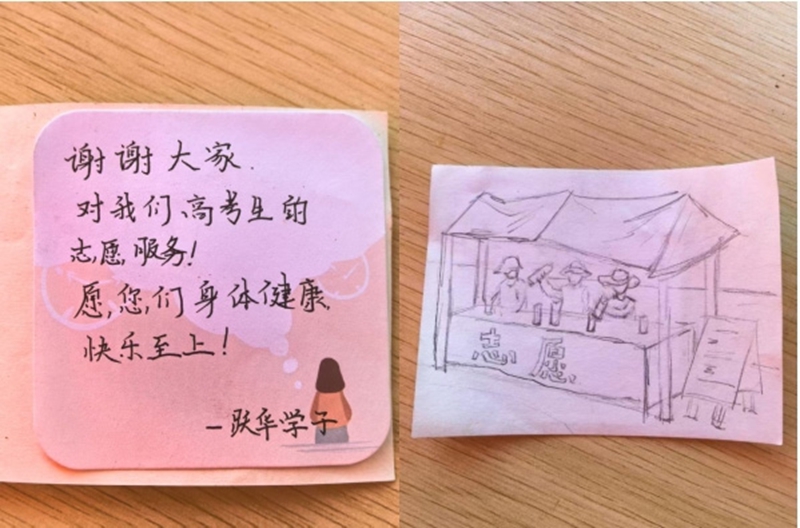 谢谢大家.
对我们、高考生的
志愿服务!
愿,您,们身体健康,
快乐至上!
—跃华学子
志愿